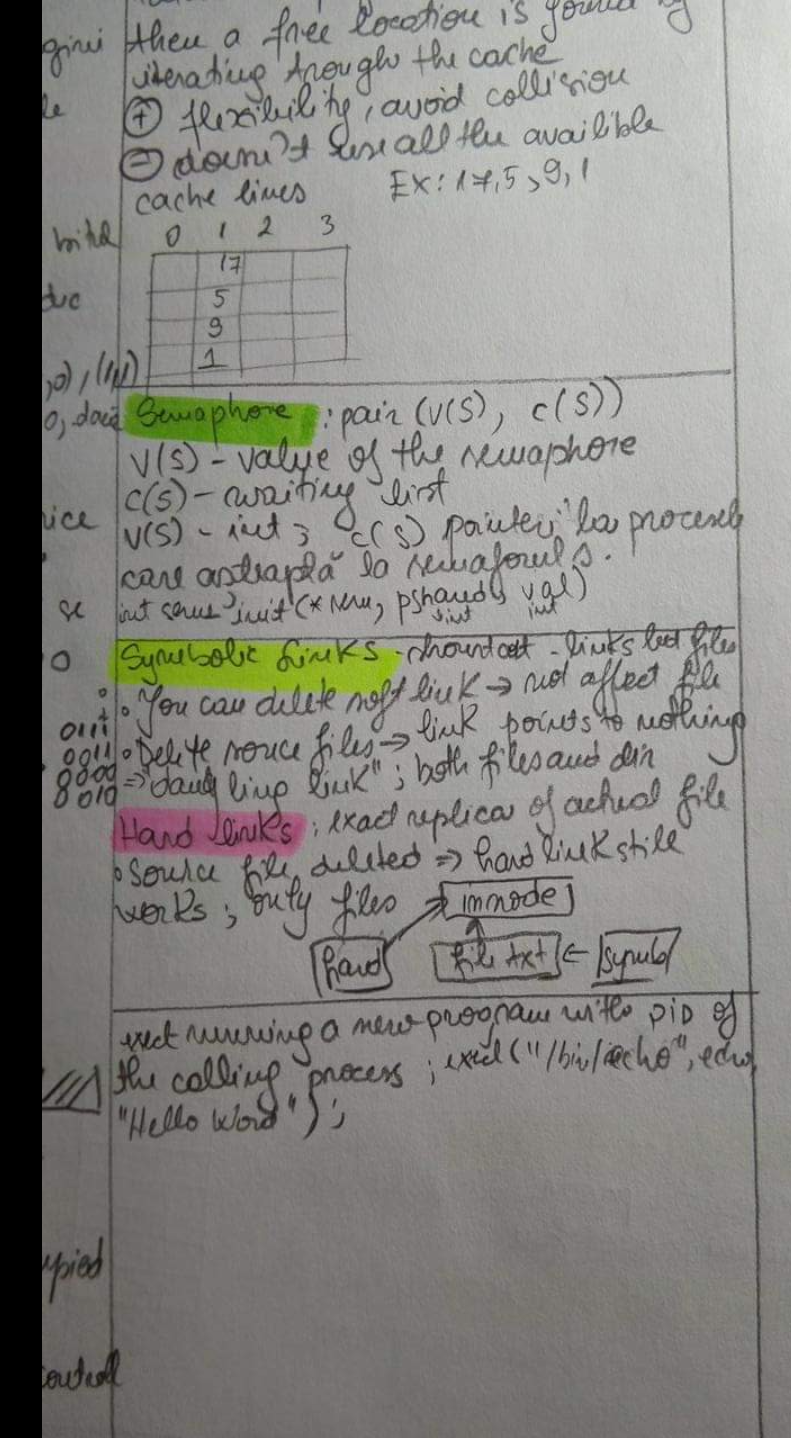 then a free location is found by
iterating trough the cache
⊕ flexibility, avoid collision
⊖ doesn't use all the availible
cache lines Ex: 17, 5, 9, 1
0 1 2 3
17
5
9
1
Semaphore : pair (V(S), c(S))
V(S) - value of the semaphore
c(S) - waiting list
V(S) - int ; c(S) pointer la procesele
care asteaptă la semaforul S.
int sem_init (*sem, pshared, val)
int int
Symbolic Links - shourtcut - links but files
• You can delete soft link → not affect file
• Delete source files → link points to nothing
⇒ "daugling link" ; both files and dir
Hard Links : exact replica of actual file
• Source file deleted ⇒ hard link still
works ; only files
imnode
hard
file txt ← symb
exec running a new program with pid of
the calling process ; execl ("/bin/echo", echo,
"Hello Word") ;
gini
le
duc
0), (1,1)
vice
se
0
0111
0011
0000
8010
upied